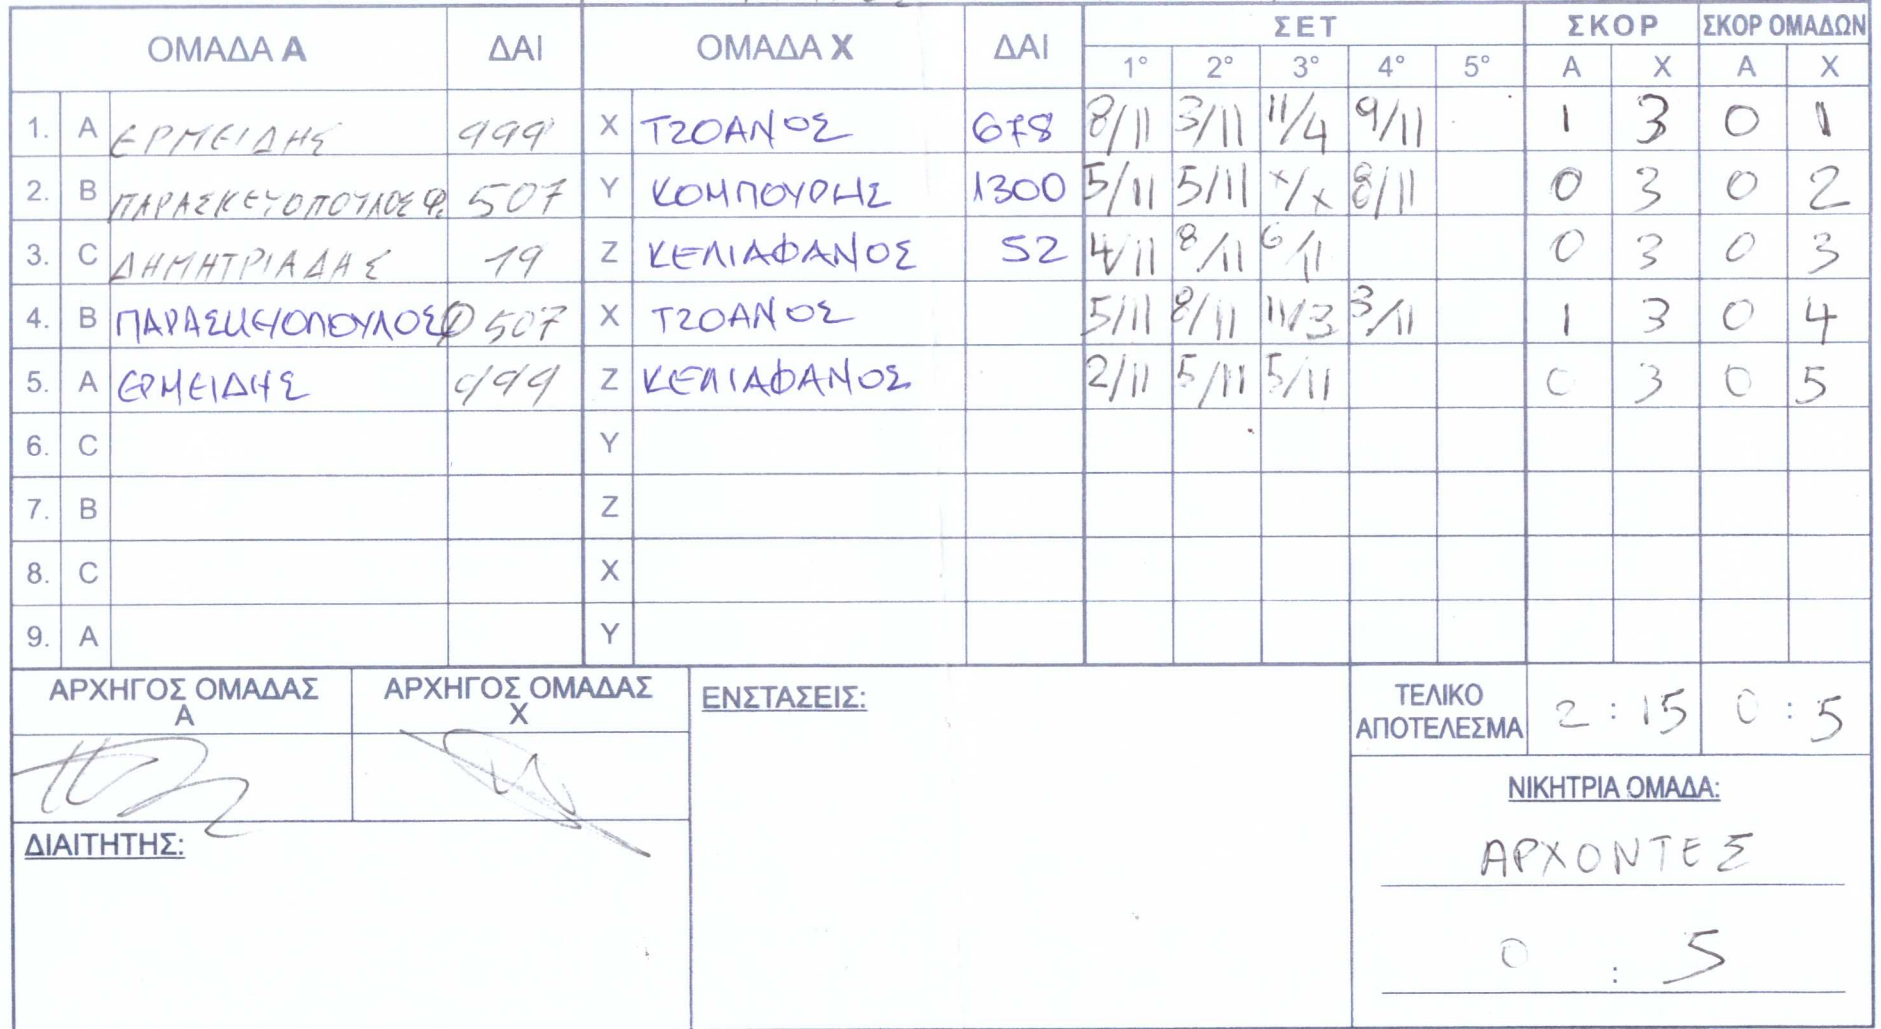 ΟΜΑΔΑ Α ΔΑΙ ΟΜΑΔΑ Χ ΔΑΙ ΣΕΤ ΣΚΟΡ ΣΚΟΡ ΟΜΑΔΩΝ
1° 2° 3° 4° 5° Α Χ Α Χ
1. A ΕΡΜΕΙΔΗΣ 999 X ΤΖΟΑΝΟΣ 678 8/11 3/11 11/4 9/11 1 3 0 1
2. B ΠΑΡΑΣΚΕΥΟΠΟΥΛΟΣ Φ. 507 Y ΚΟΜΠΟΥΡΗΣ 1300 5/11 5/11 x/x 8/11 0 3 0 2
3. C ΔΗΜΗΤΡΙΑΔΗΣ 19 Z ΚΕΛΙΑΦΑΝΟΣ 52 4/11 8/11 6/11 0 3 0 3
4. B ΠΑΡΑΣΚΕΥΟΠΟΥΛΟΣ Φ 507 X ΤΖΟΑΝΟΣ 5/11 8/11 11/3 3/11 1 3 0 4
5. A ΕΡΜΕΙΔΗΣ 999 Z ΚΕΛΙΑΦΑΝΟΣ 2/11 5/11 5/11 0 3 0 5
6. C Y
7. B Z
8. C X
9. A Y
ΑΡΧΗΓΟΣ ΟΜΑΔΑΣ Α ΑΡΧΗΓΟΣ ΟΜΑΔΑΣ Χ ΕΝΣΤΑΣΕΙΣ: ΤΕΛΙΚΟ ΑΠΟΤΕΛΕΣΜΑ 2 : 15 0 : 5
ΝΙΚΗΤΡΙΑ ΟΜΑΔΑ:
ΔΙΑΙΤΗΤΗΣ:
ΑΡΧΟΝΤΕΣ
0 : 5